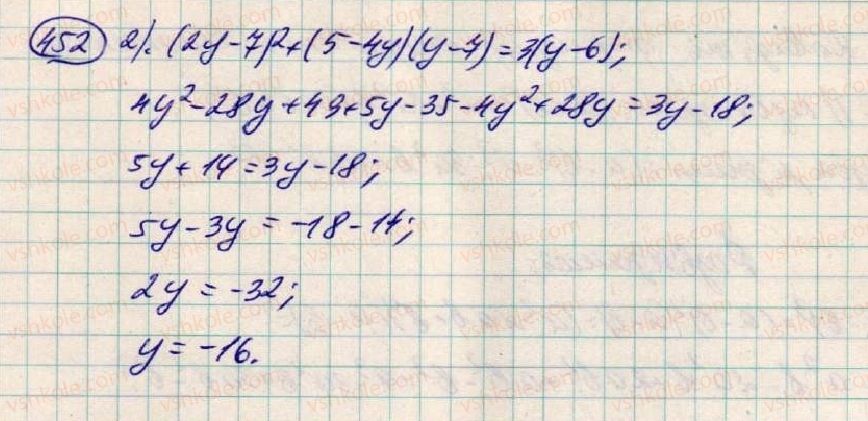 452 2). (2y-7)²+(5-4y)(y-7)=3(y-6);
4y²-28y+49+5y-35-4y²+28y=3y-18;
5y+14=3y-18;
5y-3y=-18-14;
2y=-32;
y=-16.